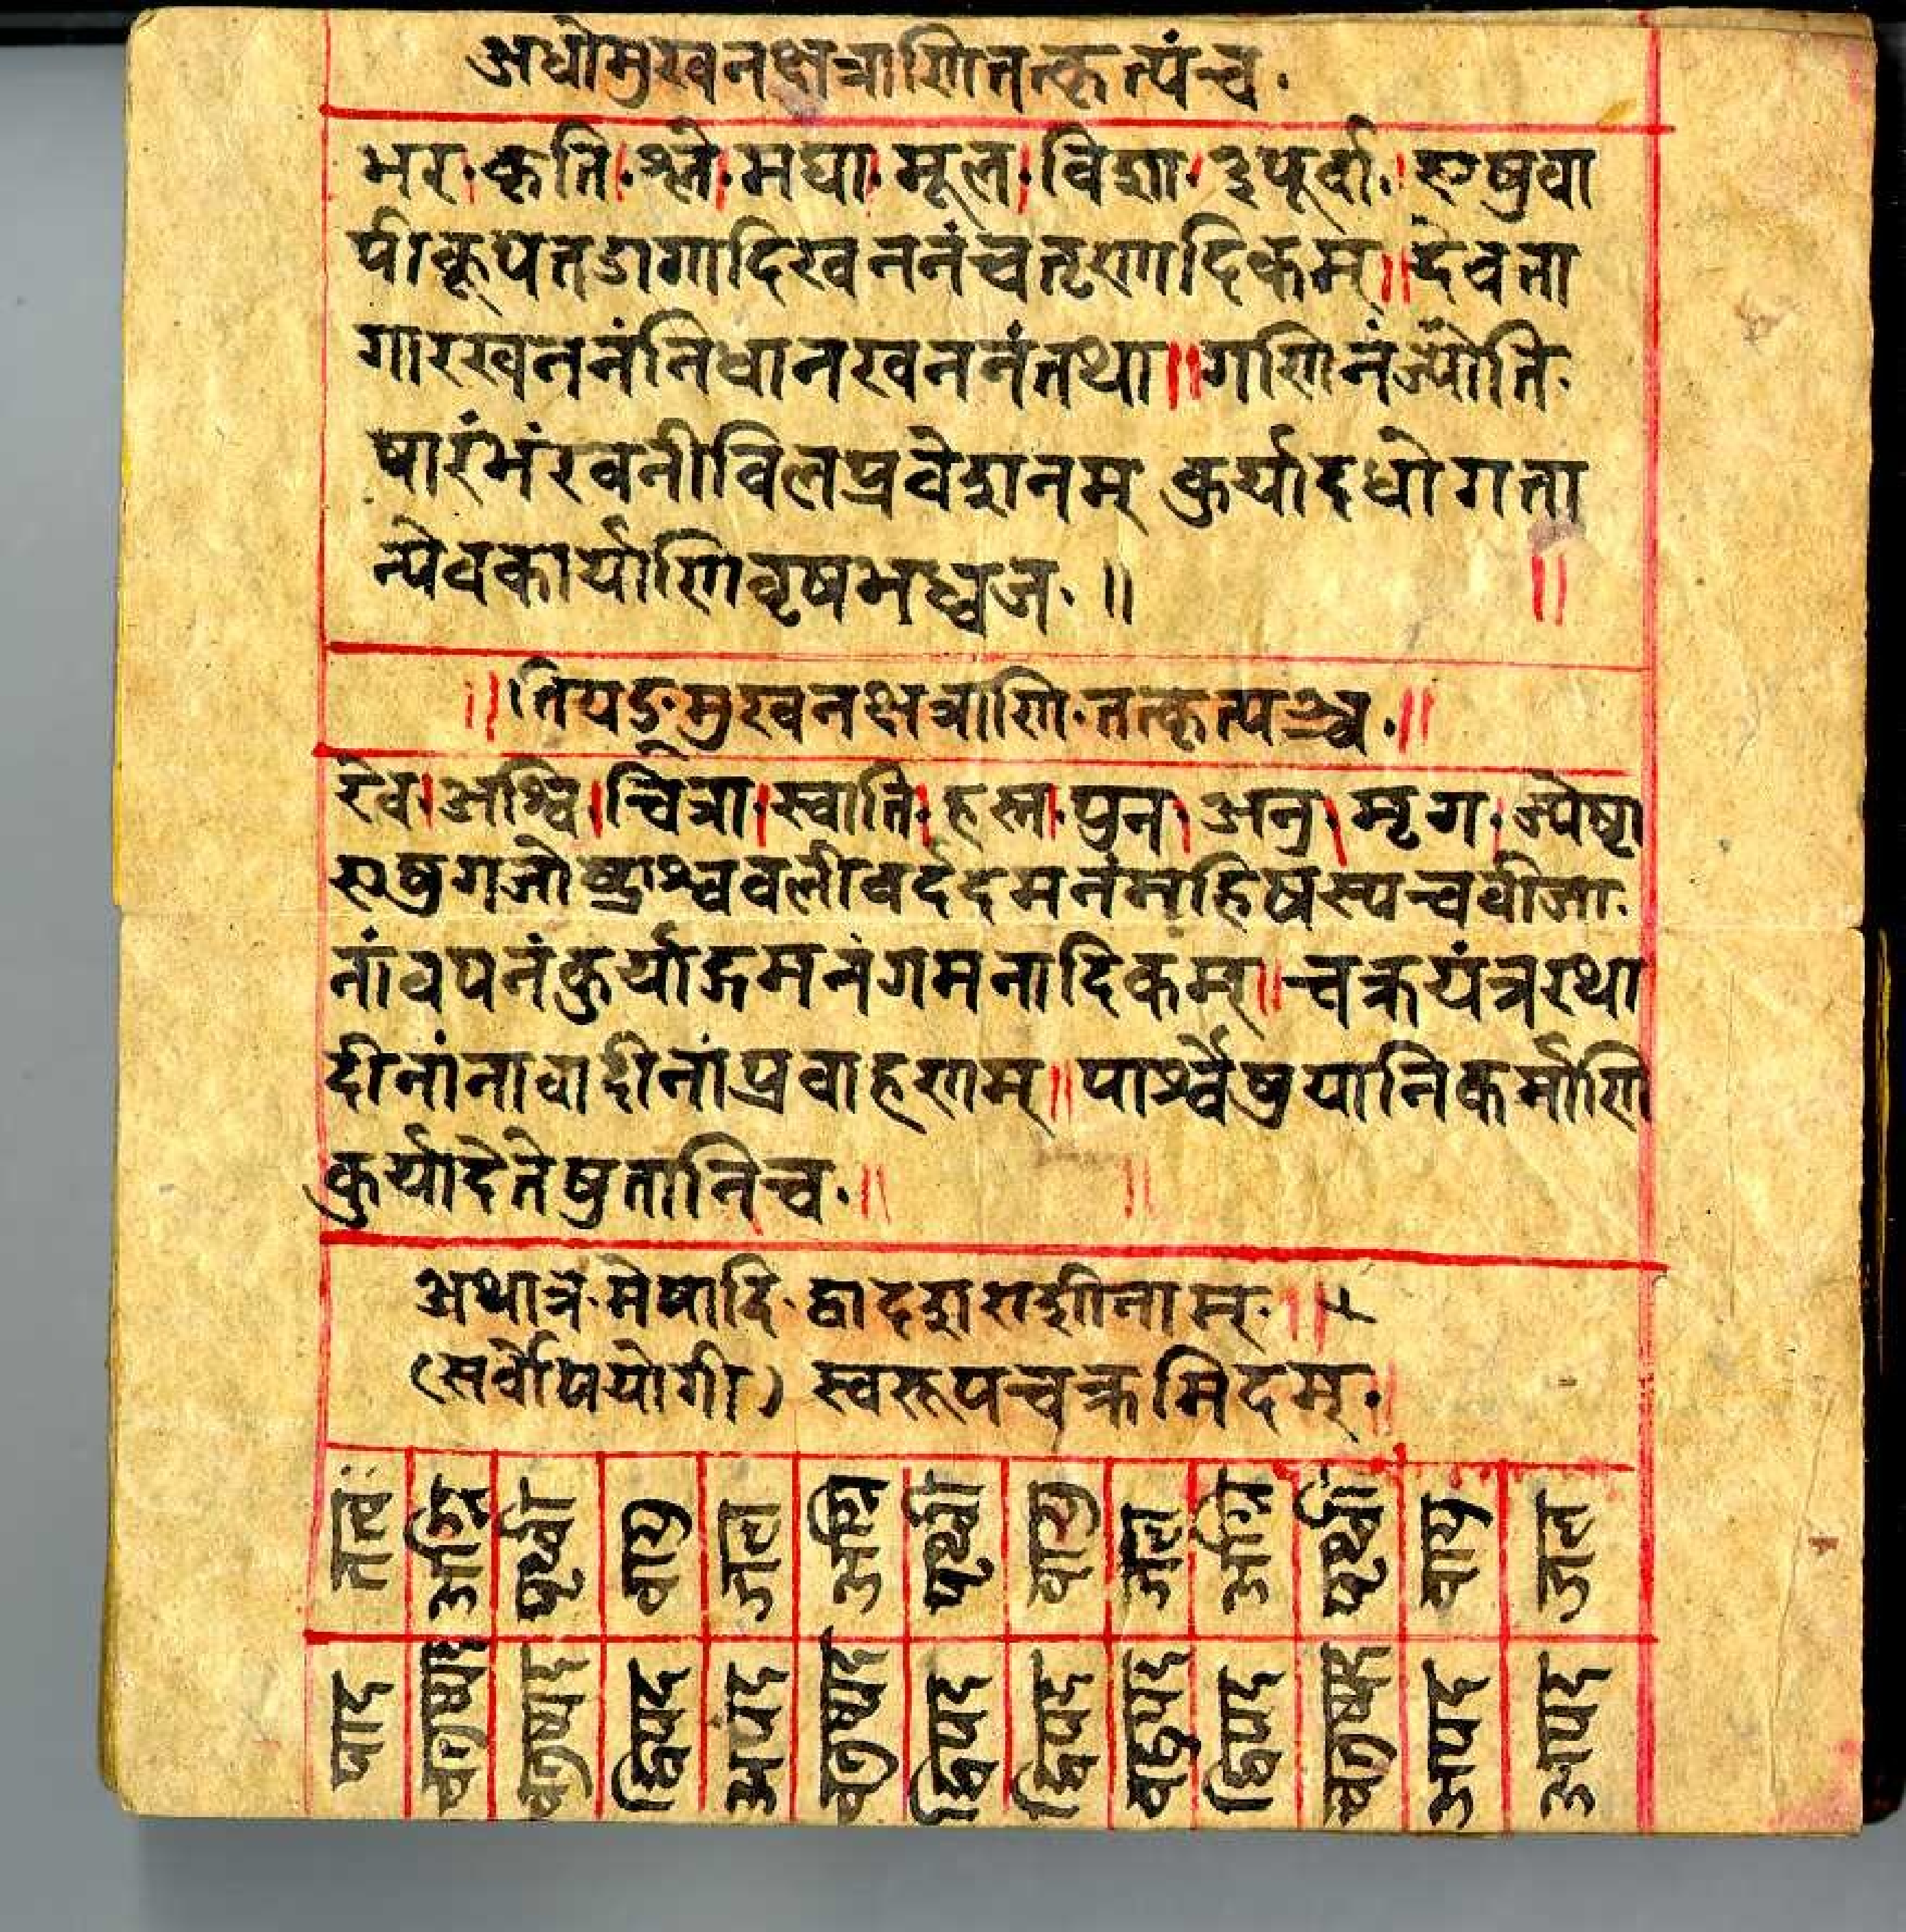 अधोमुखनक्षत्राणितत्कृत्यंच.
भर.।कृति.।श्ले.।मघा.।मूल.।विशा.।३पूर्वा.।एषुवा
पीकूपतडागादिखननंचतृणादिकम्॥देवता
गारखननंनिधानखननंतथा॥गणितंज्योति
षारंभंखनीविलप्रवेशनम् कुर्यादधोगता
न्येवकार्याणिवृषभध्वज.॥ ॥
॥तिर्यङ्मुखनक्षत्राणि.तत्कृत्यञ्च.॥
रेव।अश्वि।चित्रा.।स्वाति.।हस्त.।पुन.।अनु।मृग.।ज्येष्ठा
एषुगजोष्ट्राश्ववलीवर्ददमनंमहिषस्यचवीजा.
नांवपनंकुर्याद्गमनंगमनादिकम्॥चक्रयंत्ररथा
दीनांनावादीनांप्रवाहणम्॥पार्श्वेषुयानिकर्माणि
कुर्यादेतेषुतानिच.॥ ॥
अथात्र.मेषादि.द्वादशराशीनाम्.॥
(सर्वोपयोगी) स्वरूपचक्रमिदम्.
तत्वं अग्नि पृथ्वी वायु जल अग्नि पृथ्वी वायु जल अग्नि पृथ्वी वायु जल
पाद चतुष्पद चतुष्पद द्विपद अपद चतुष्पद द्विपद द्विपद द्विपद चतुष्पद अपद अपद